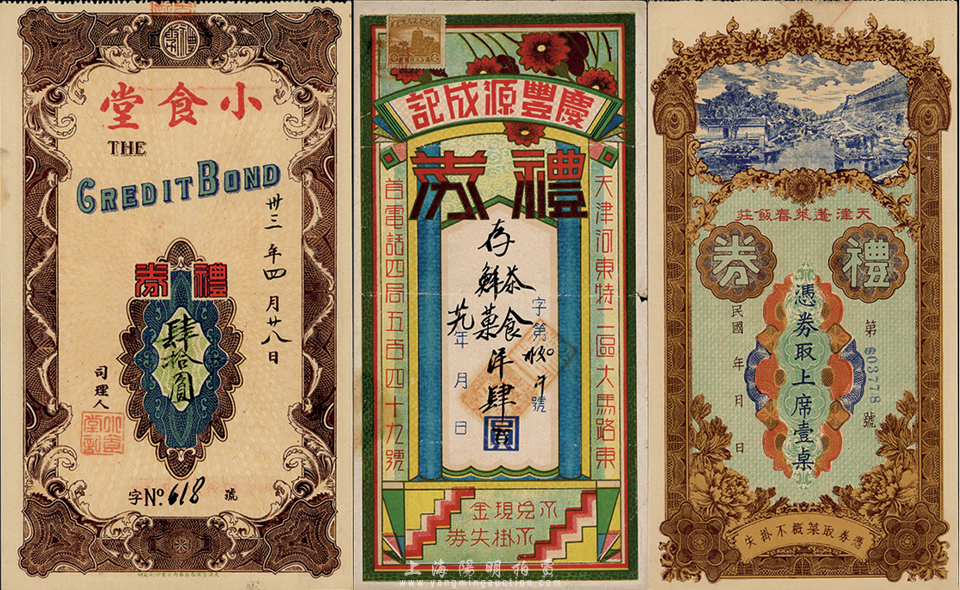 小食堂
THE
CREDIT BOND
卅三年四月廿八日
禮券
肆拾圓
司理人
字 No. 618 號
慶豐源成記
禮券
天津河東特二區大馬路東
首電話四局五百四十九號
存
茶食
鮮菓
洋肆
圓
字第 號
年 月 日
不兌現金
不掛失券
天津蓬萊春飯莊
禮券
憑券取上席壹桌
第 803778 號
民國 年 月 日
憑券取菜概不掛失
上海陽明拍賣
www.yangmingauction.com